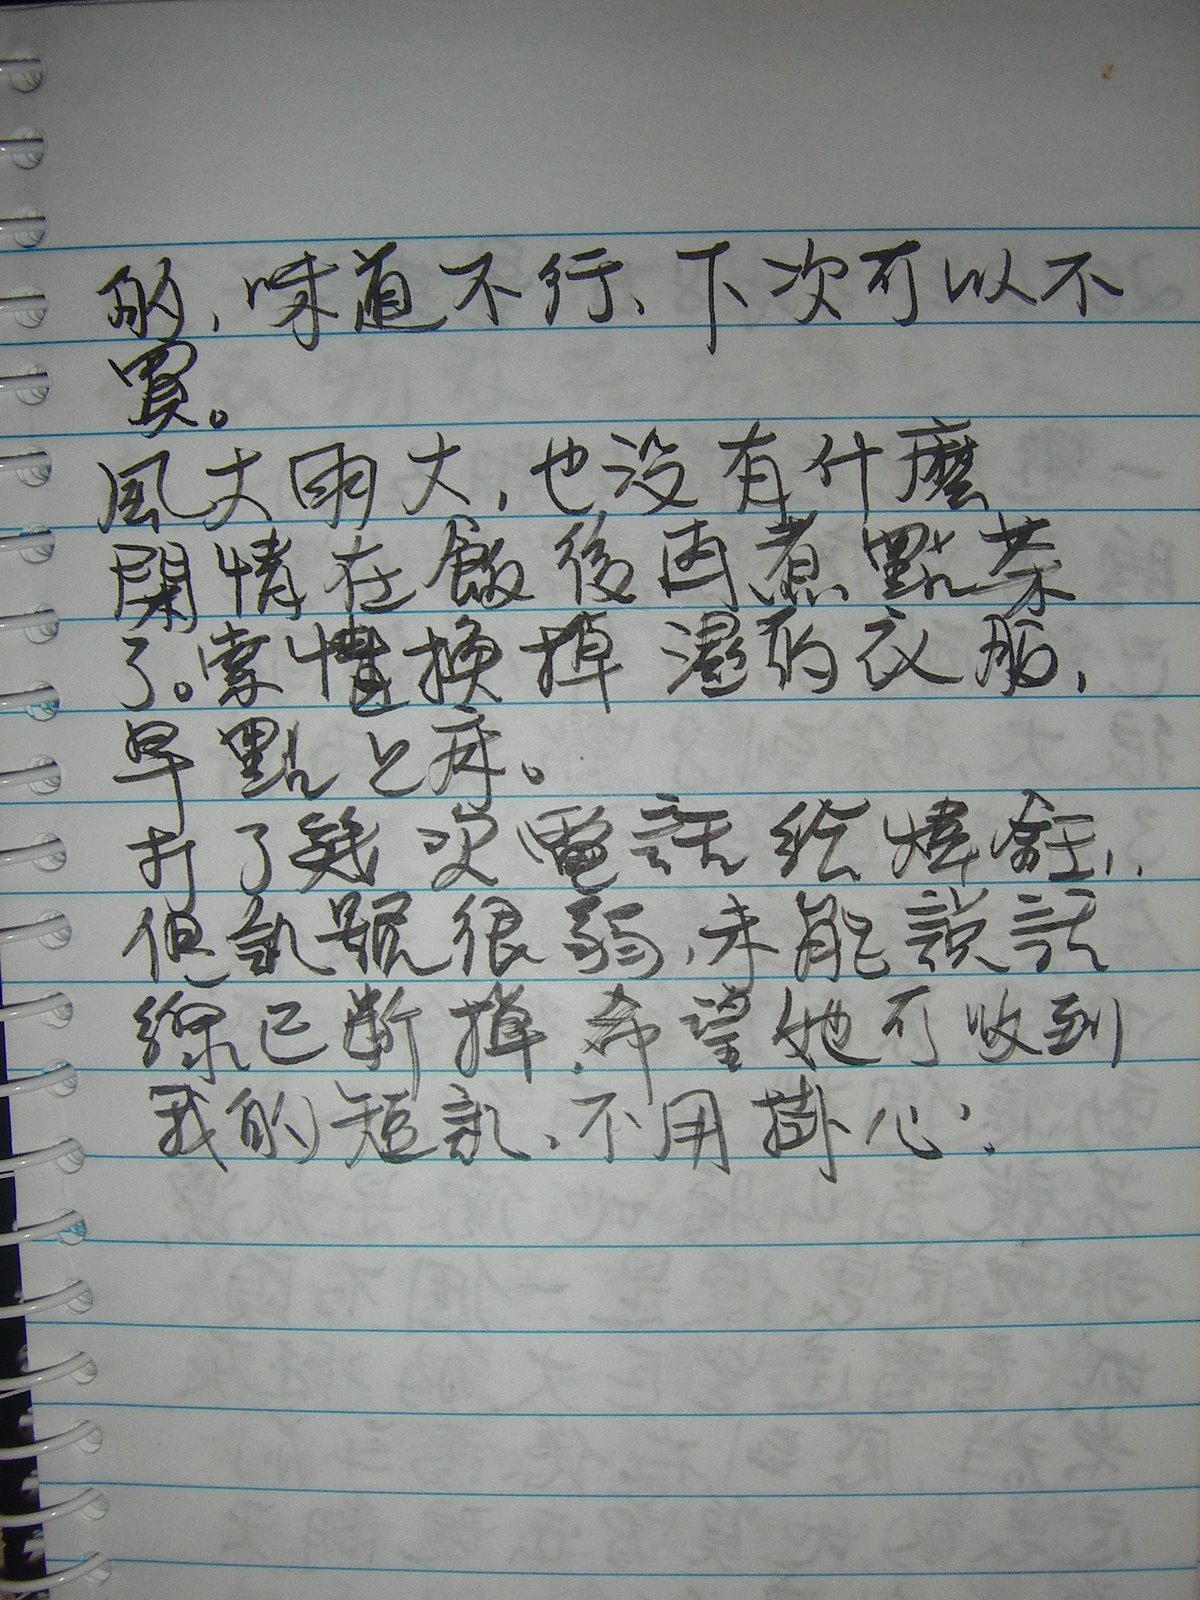 的,味道不行、下次可以不
買。
風大雨大,也没有什麼
閑情在飯後再煮點茶
了。索性換掉濕的衣服,
早點上床。
打了幾次電話給煒鈺,
但訊號很弱,未能說話
線已斷掉.希望她可收到
我的短訊、不用掛心.